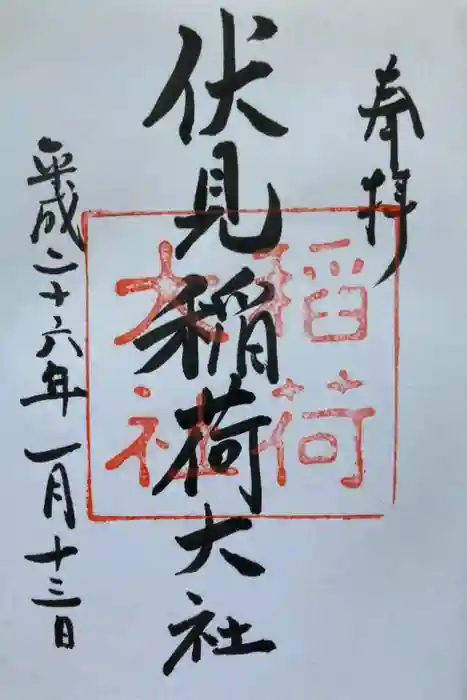 奉拝
伏見稲荷大社
平成二十六年一月十三日
稲荷
大社